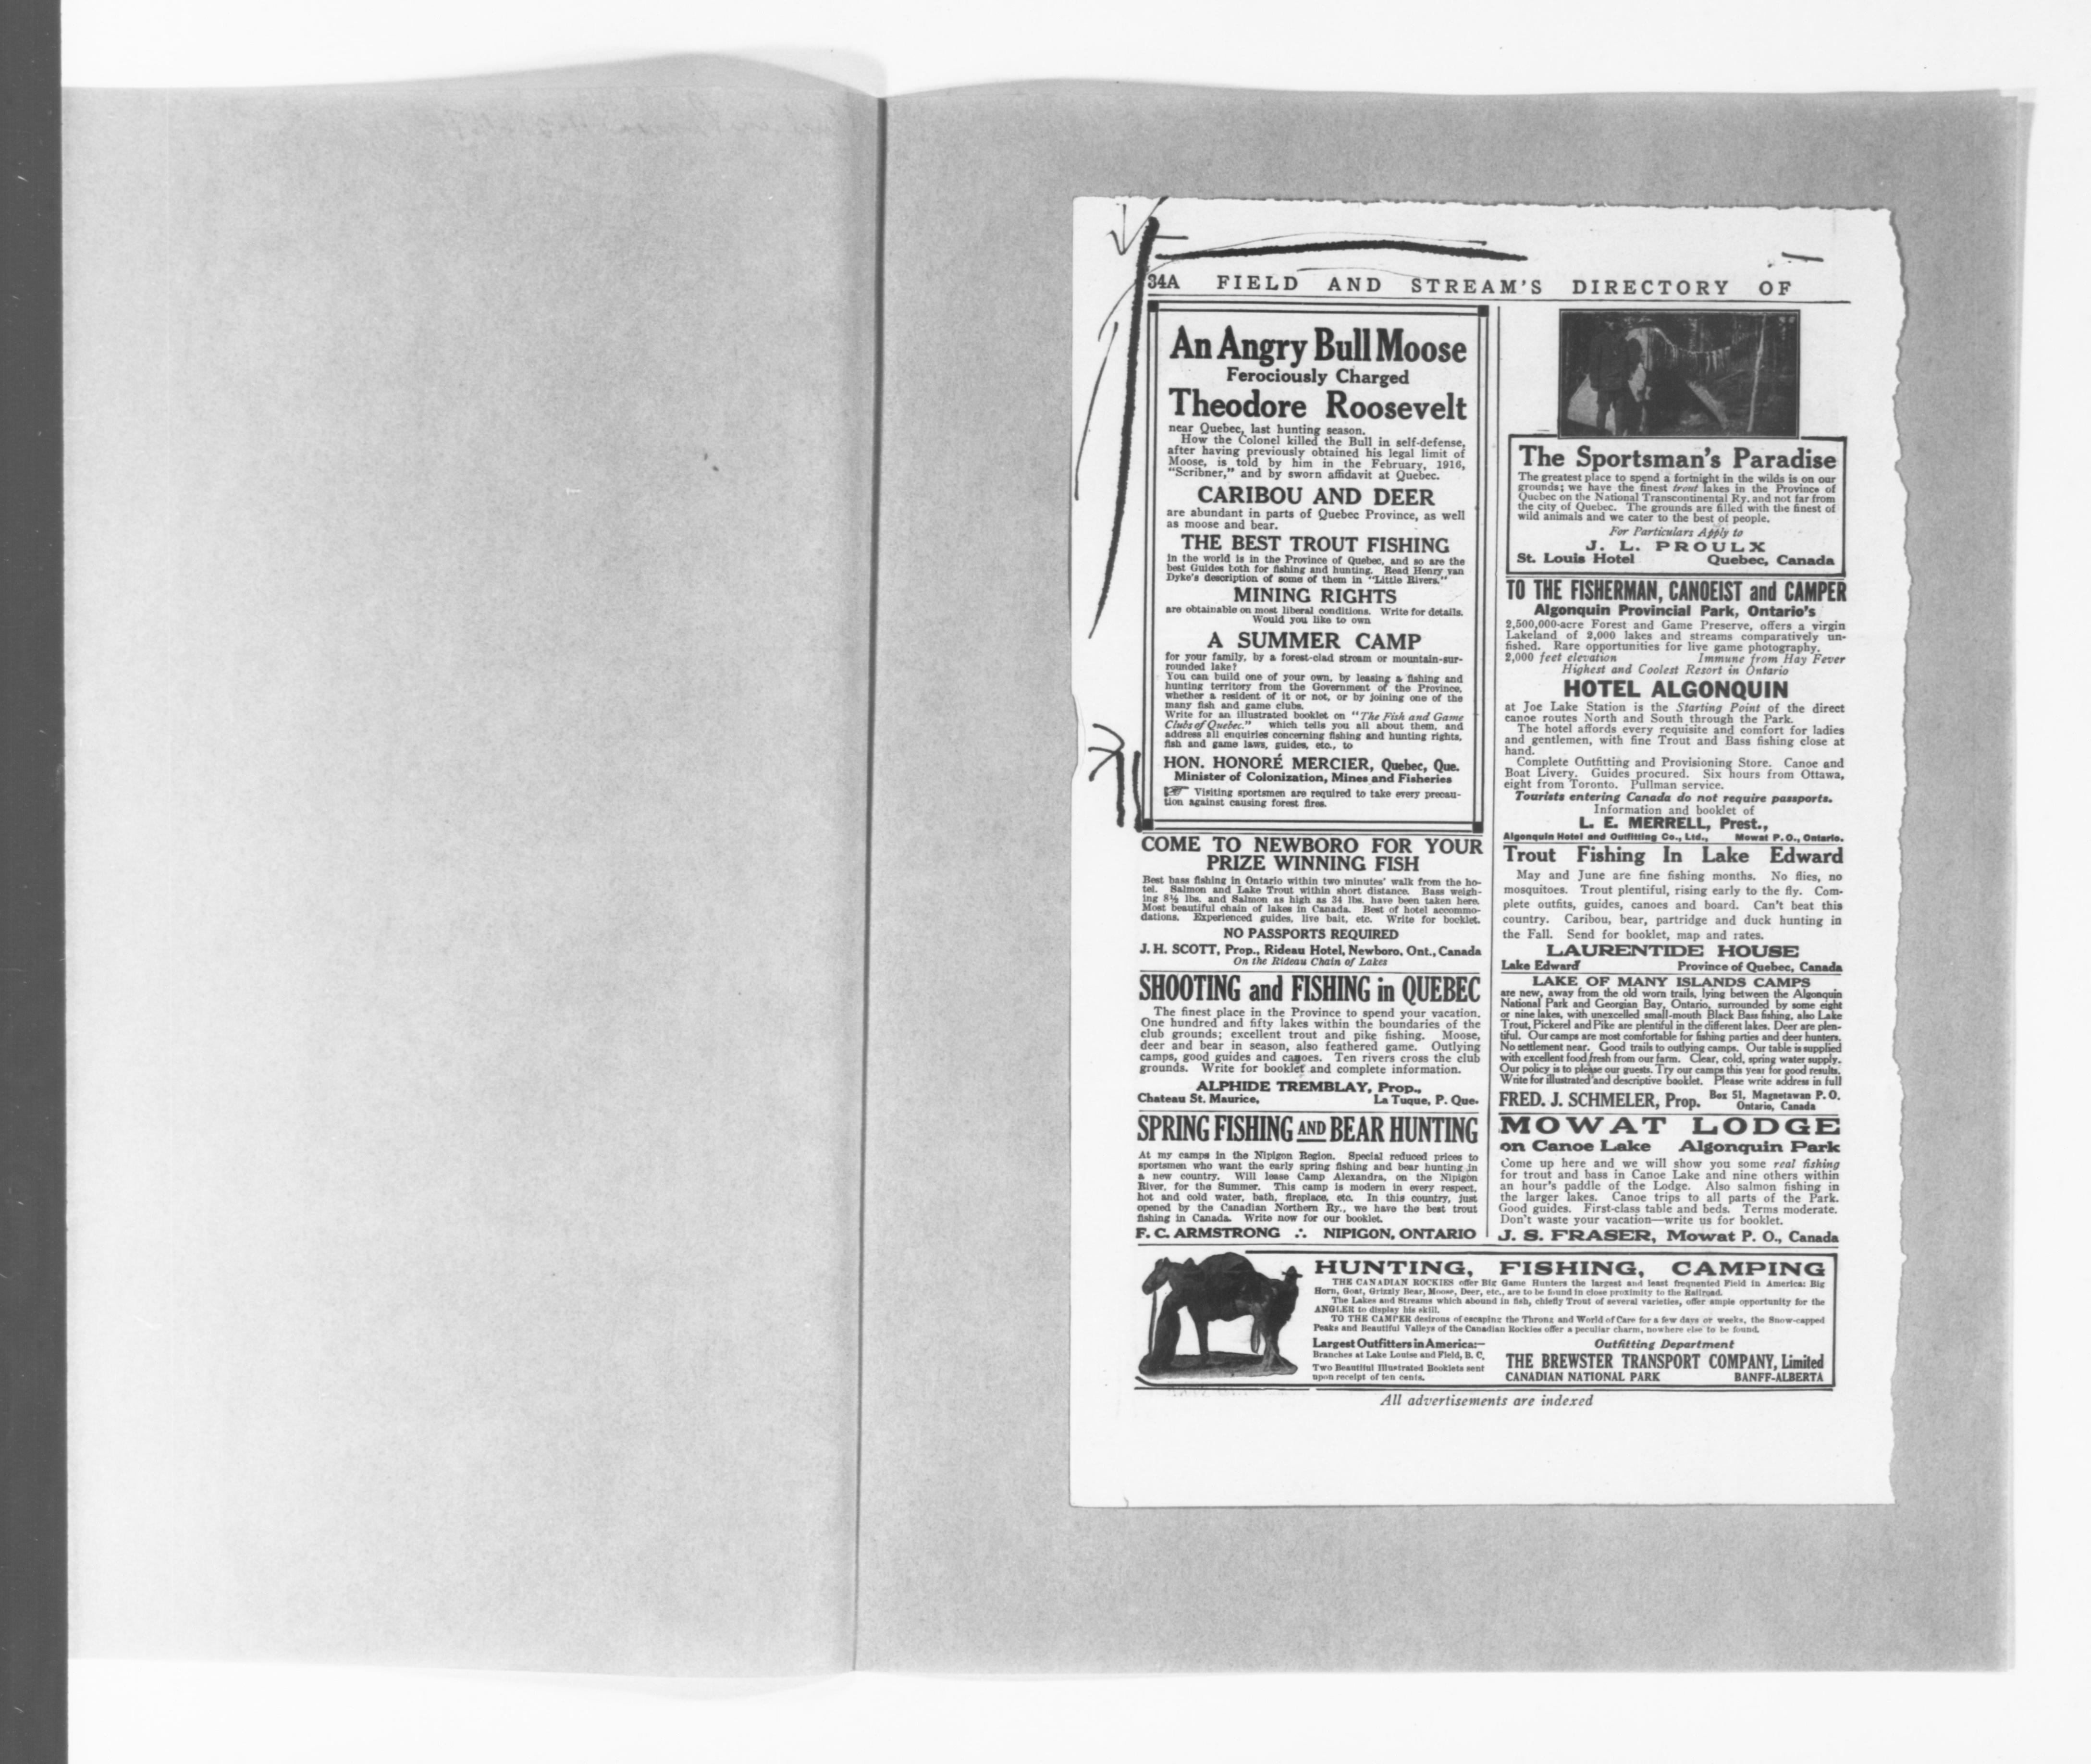 34A FIELD AND STREAM'S DIRECTORY OF
An Angry Bull Moose
Ferociously Charged
Theodore Roosevelt
near Quebec, last hunting season.
How the Colonel killed the Bull in self-defense,
after having previously obtained his legal limit of
Moose, is told by him in the February, 1916,
"Scribner," and by sworn affidavit at Quebec.
CARIBOU AND DEER
are abundant in parts of Quebec Province, as well
as moose and bear.
THE BEST TROUT FISHING
in the world is in the Province of Quebec, and so are the
best Guides both for fishing and hunting. Read Henry van
Dyke's description of some of them in "Little Rivers."
MINING RIGHTS
are obtainable on most liberal conditions. Write for details.
Would you like to own
A SUMMER CAMP
for your family, by a forest-clad stream or mountain-sur-
rounded lake?
You can build one of your own, by leasing a fishing and
hunting territory from the Government of the Province,
whether a resident of it or not, or by joining one of the
many fish and game clubs.
Write for an illustrated booklet on "The Fish and Game
Clubs of Quebec." which tells you all about them, and
address all enquiries concerning fishing and hunting rights,
fish and game laws, guides, etc., to
HON. HONORÉ MERCIER, Quebec, Que.
Minister of Colonization, Mines and Fisheries
☞ Visiting sportsmen are required to take every precau-
tion against causing forest fires.
COME TO NEWBORO FOR YOUR
PRIZE WINNING FISH
Best bass fishing in Ontario within two minutes' walk from the ho-
tel. Salmon and Lake Trout within short distance. Bass weigh-
ing 8½ lbs. and Salmon as high as 34 lbs. have been taken here.
Most beautiful chain of lakes in Canada. Best of hotel accommo-
dations. Experienced guides, live bait, etc. Write for booklet.
NO PASSPORTS REQUIRED
J. H. SCOTT, Prop., Rideau Hotel, Newboro, Ont., Canada
On the Rideau Chain of Lakes
SHOOTING and FISHING in QUEBEC
The finest place in the Province to spend your vacation.
One hundred and fifty lakes within the boundaries of the
club grounds; excellent trout and pike fishing. Moose,
deer and bear in season, also feathered game. Outlying
camps, good guides and canoes. Ten rivers cross the club
grounds. Write for booklet and complete information.
ALPHIDE TREMBLAY, Prop.,
Chateau St. Maurice, La Tuque, P. Que.
SPRING FISHING AND BEAR HUNTING
At my camps in the Nipigon Region. Special reduced prices to
sportsmen who want the early spring fishing and bear hunting in
a new country. Will lease Camp Alexandra, on the Nipigon
River, for the Summer. This camp is modern in every respect,
hot and cold water, bath, fireplace, etc. In this country, just
opened by the Canadian Northern Ry., we have the best trout
fishing in Canada. Write now for our booklet.
F. C. ARMSTRONG ∴ NIPIGON, ONTARIO
The Sportsman's Paradise
The greatest place to spend a fortnight in the wilds is on our
grounds; we have the finest trout lakes in the Province of
Quebec on the National Transcontinental Ry. and not far from
the city of Quebec. The grounds are filled with the finest of
wild animals and we cater to the best of people.
For Particulars Apply to
J. L. PROULX
St. Louis Hotel Quebec, Canada
TO THE FISHERMAN, CANOEIST and CAMPER
Algonquin Provincial Park, Ontario's
2,500,000-acre Forest and Game Preserve, offers a virgin
Lakeland of 2,000 lakes and streams comparatively un-
fished. Rare opportunities for live game photography.
2,000 feet elevation Immune from Hay Fever
Highest and Coolest Resort in Ontario
HOTEL ALGONQUIN
at Joe Lake Station is the Starting Point of the direct
canoe routes North and South through the Park.
The hotel affords every requisite and comfort for ladies
and gentlemen, with fine Trout and Bass fishing close at
hand.
Complete Outfitting and Provisioning Store. Canoe and
Boat Livery. Guides procured. Six hours from Ottawa,
eight from Toronto. Pullman service.
Tourists entering Canada do not require passports.
Information and booklet of
L. E. MERRELL, Prest.,
Algonquin Hotel and Outfitting Co., Ltd., Mowat P. O., Ontario.
Trout Fishing In Lake Edward
May and June are fine fishing months. No flies, no
mosquitoes. Trout plentiful, rising early to the fly. Com-
plete outfits, guides, canoes and board. Can't beat this
country. Caribou, bear, partridge and duck hunting in
the Fall. Send for booklet, map and rates.
LAURENTIDE HOUSE
Lake Edward Province of Quebec, Canada
LAKE OF MANY ISLANDS CAMPS
are new, away from the old worn trails, lying between the Algonquin
National Park and Georgian Bay, Ontario, surrounded by some eight
or nine lakes, with unexcelled small-mouth Black Bass fishing, also Lake
Trout, Pickerel and Pike are plentiful in the different lakes. Deer are plen-
tiful. Our camps are most comfortable for fishing parties and deer hunters.
No settlement near. Good trails to outlying camps. Our table is supplied
with excellent food fresh from our farm. Clear, cold, spring water supply.
Our policy is to please our guests. Try our camps this year for good results.
Write for illustrated and descriptive booklet. Please write address in full
FRED. J. SCHMELER, Prop. Box 51, Magnetawan P. O.
Ontario, Canada
MOWAT LODGE
on Canoe Lake Algonquin Park
Come up here and we will show you some real fishing
for trout and bass in Canoe Lake and nine others within
an hour's paddle of the Lodge. Also salmon fishing in
the larger lakes. Canoe trips to all parts of the Park.
Good guides. First-class table and beds. Terms moderate.
Don't waste your vacation—write us for booklet.
J. S. FRASER, Mowat P. O., Canada
HUNTING, FISHING, CAMPING
THE CANADIAN ROCKIES offer Big Game Hunters the largest and least frequented Field in America: Big
Horn, Goat, Grizzly Bear, Moose, Deer, etc., are to be found in close proximity to the Railroad.
The Lakes and Streams which abound in fish, chiefly Trout of several varieties, offer ample opportunity for the
ANGLER to display his skill.
TO THE CAMPER desirous of escaping the Throng and World of Care for a few days or weeks, the Snow-capped
Peaks and Beautiful Valleys of the Canadian Rockies offer a peculiar charm, nowhere else to be found.
Largest Outfitters in America:—
Branches at Lake Louise and Field, B. C.
Two Beautiful Illustrated Booklets sent
upon receipt of ten cents.
Outfitting Department
THE BREWSTER TRANSPORT COMPANY, Limited
CANADIAN NATIONAL PARK BANFF-ALBERTA
All advertisements are indexed